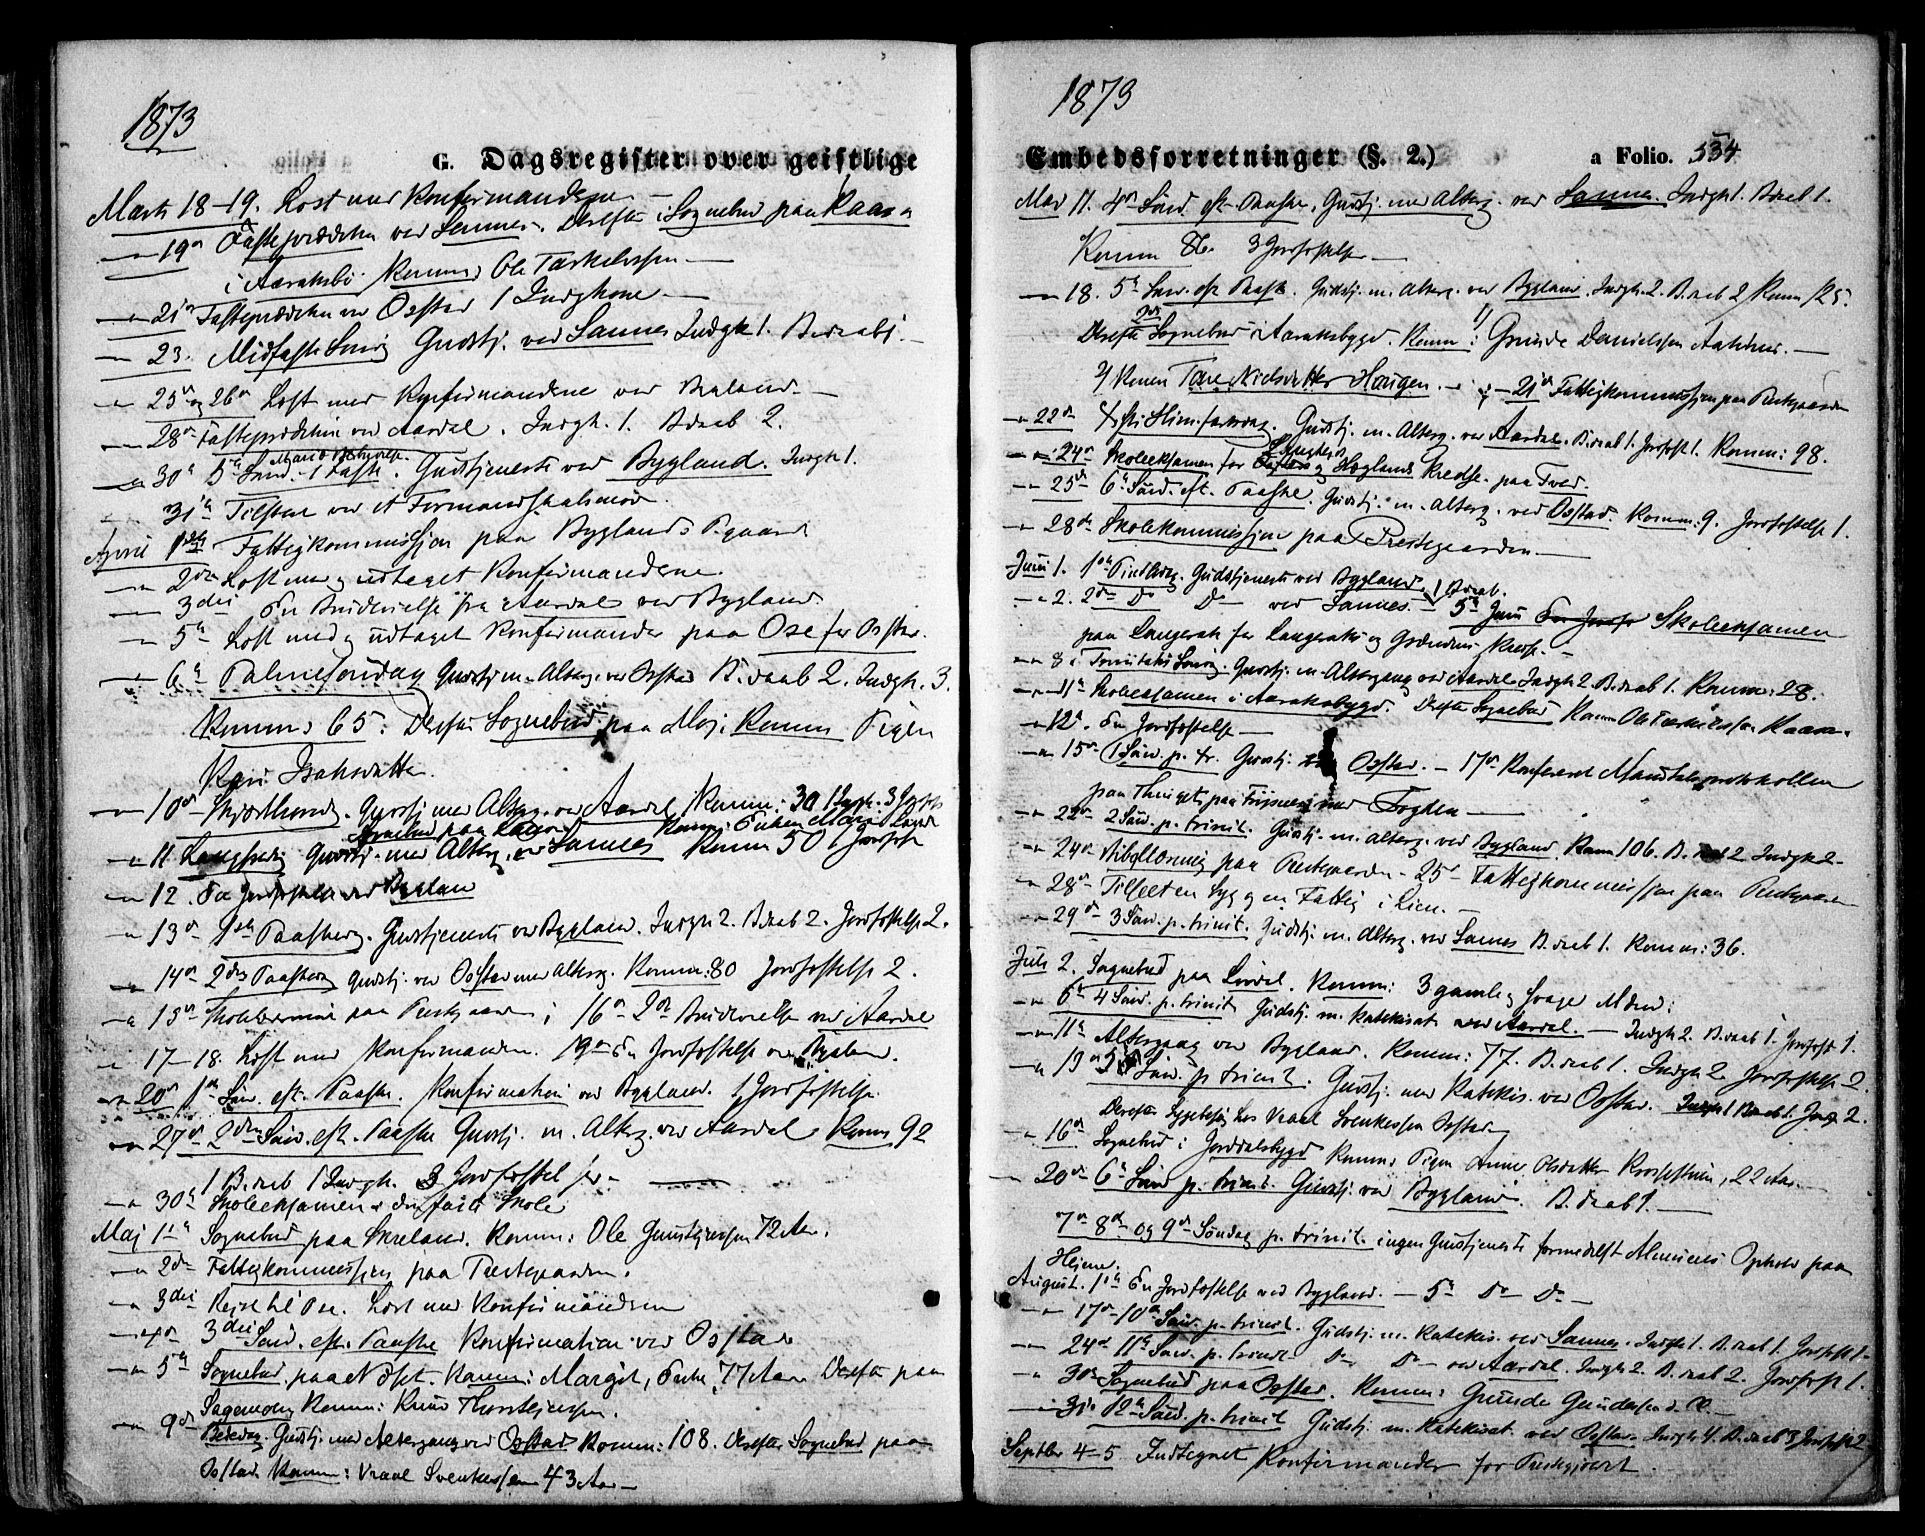 1873
G. Dagsregister over geistlige
Marts 18-19. Læst med Konfirmanderne
19de Fasteprædiken ved Sannes. Derefter i Sognebud paa Kaasa
i Aaraksbø Komm: Ole Tarkelssen
21de Fasteprædiken ved Osstad 1 Indgkone
23. Midfaste Søndag Gudstj. ved Sannes Indgk 1. B.daab 1.
25de og 26de Læst med Konfirmanderne ved Bygland
28de Fasteprædiken ved Aardal. Indgk. 1. B.daab 2.
Mariæ Bebudelse
30te 5te Sønd. i Faste. Gudstjeneste ved Bygland. Indgk 1.
31te Tilstede ved et Formandskabsmøde.
April 1ste Fattigkommission paa Byglands Pgaard
2den Læst med og udtaget Konfirmanderne.
3die En Brudevielse fra Aardal ved Bygland.
5te Læst med og udtaget Konfirmander paa Ose for Osstad.
6te Palmesøndag Gudstj. m. Alterg. ved Osstad B.daab 2. Indgk. 3.
Komm: 65. Derefter Sognebud paa Moj: Komm Pigen
Kari Isaksdatter.
10de Skjærthorsdag. Gudstj. med Alterg. ved Aardal Komm: 30 1 Indgk. 3 Jordf
Sognebud paa Komm: Enken Mari
11 Langfredag Gudstj. med Alterg. ved Sannes Komm 50 1 Jordfst
12. En Jordfæstelse ved Bygland
13de 1ste Paaskedag. Gudstjeneste ved Bygland. Indgk 2. B.daab 2. Jordfæstelse 2.
14de 2den Paaskedag Gudstj. ved Osstad med Alterg. Komm: 80 Jordfæstelse 2.
15de Skolekommission paa Præstgaarden; 16de 2de Brudevielse ved Aardal
17-18. Læst med Konfirmanderne. 19de En Jordfæstelse ved Bygland.
20de 1ste Sønd. eft. Paaske. Konfirmation ved Bygland. 1 Jordfæstelse.
27de 2den Sønd. eft. Paaske Gudstj. m. Alterg. ved Aardal Komm 92
1 B.daab 1 Indgk. 3 Jordfæstelser.
30te Skoleeksamen i den faste Skole
Maj 1ste Sognebud paa Skreland. Komm: Ole Gunstejnssen 72 Aar.
2den Fattigkommission paa Præstegaarden.
3die Rejse til Ose. Læst med Konfirmanderne
4de 3die Sønd. eft. Paaske Konfirmation ved Osstad
5te Sognebud paa Nåset. Komm: Margit, Enke, 77 Aar Derefter paa
Sagemoen Komm: Knud Thorstejnssen.
9de Bededag. Gudstj. med Altergang ved Osstad Komm: 108. Derefter Sognebud paa
Osstad Komm: Vraal Svenkessen 43 Aar
1873
Embedsforretninger (§. 2.)
a Folio. 534
Maj 11. 4de Sønd. eft. Paaske, Gudstj. med Alterg. ved Sannes. Indgk 1. B.daab 1.
Komm 86. 3 Jordfæstelser
18. 5te Sønd. eft. Paaske. Gudstj. m. Alterg. ved Bygland. Indgk. 2. B.daab 2 Komm 125.
Derefter 2de Sognebud i Aaraksbygd. Komm: 1) Gunde Danielssen
2) Konen Tone Nielsdatter Haugen. 21de Fattigkommission paa Præstgaarden
22de Kristi Himmelfartsdag. Gudstj. m. Alterg. ved Aardal. B.daab 1. Jordfst 1. Komm: 98.
24de Skoleeksamen for og Høglands Kredse paa Tved.
25de 6te Sønd. eft. Paaske. Gudstj. m. Alterg. ved Osstad. Komm: 9. Jordfæstelse 1.
28de Skolekommission paa Præstegaarden
Juni 1. 1ste Pintsedag. Gudstjeneste ved Bygland. 1 B.daab.
2. 2den Do Do ved Sannes. 5te Juni Skoleeksamen
paa Langerak for Langeraks og Kreds.
8de Trinitatis Søndag. Gudstj. m. Altergang ved Aardal Indgk 2. B.daab 1. Komm: 28.
11te Skoleeksamen i Aaraksbygd. Derefter Sognebud Komm Ole Tarkelssen Kaasa.
12te En Jordfæstelse
15de 1 Sønd. p. tr. Gudstj. Osstad. 17de Konfereret Mandtalsprotokollen
paa Thinget paa med Fogden
22de 2 Sønd. p. trinit. Gudstj. m. Alterg. ved Bygland. Komm 106. B.daab 2 Indgk 2
24de Bibellæsning paa Præstgaarden 25de Fattigkommission paa Præstgaarden
28de Tilseet en syg og en Fattig i Lien.
29de 3 Sønd. p. trinit. Gudstj. m. Alterg. ved Sannes B.daab 1. Komm: 36.
Juli 2. Sognebud paa Lindal. Komm: 3 gamle og svage Mænd:
6te 4 Sønd. p. trinit. Gudstj. m. Katekisat. ved Aardal. Indgk 2. B.daab 1. Jordfst 1.
11te Altergang ved Bygland. Komm: 77 B.daab 1. Indgk 2. Jordfæstelse 2.
13de 5te Sønd. p. trinit. Gudstj. med Katekis. ved Osstad. Indgk 1 B.daab 1. Jordf 2.
Derefter Sygebesøg hos Vraal Svenkessen Osstad
16de Sognebud i Jorddalsbygd Komm: Pigen Anne Olsdatter, 22 Aar.
20de 6te Sønd. p. trinit. Gudstj. ved Bygland. B.daab 1.
7de 8de og 9de Søndag p. trinit. ingen Gudstjeneste formedelst Ophold paa
Hejene.
August. 1ste En Jordfæstelse ved Bygland. 5te Do Do
17de 10de Sønd. p. trinit. Gudstj. m. Katekis. ved Sannes. Indgk 1. B.daab 1. Jordfst 1.
24de 11te Sønd. p. trinit Do Do ved Aardal. Indgk 2. B.daab 2. Jordfst 1.
30te Sognebud paa Osstad. Komm: Gunde Gundersen
31te 12te Sønd. p. trinit Gudstj. m. Katekisat. ved Osstad. Indgk 4. B.daab 3 Jordfst 2
Septber 4-5 Indtegnet Konfirmander for Præstegjeldet